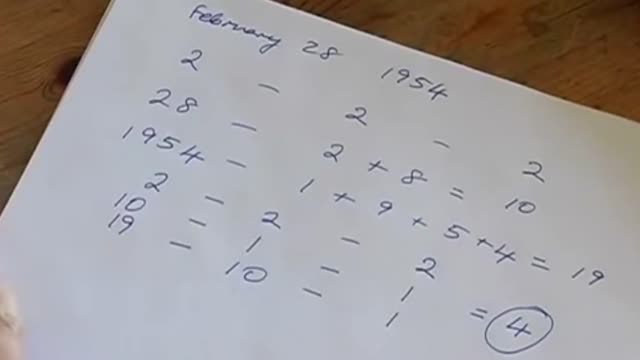 February 28 1954
2 - 2 - 2
28 - 2 + 8 = 10
1954 - 1 + 9 + 5 + 4 = 19
2 - 2 - 2
10 - 1 - 1
19 - 10 - 1 = 4